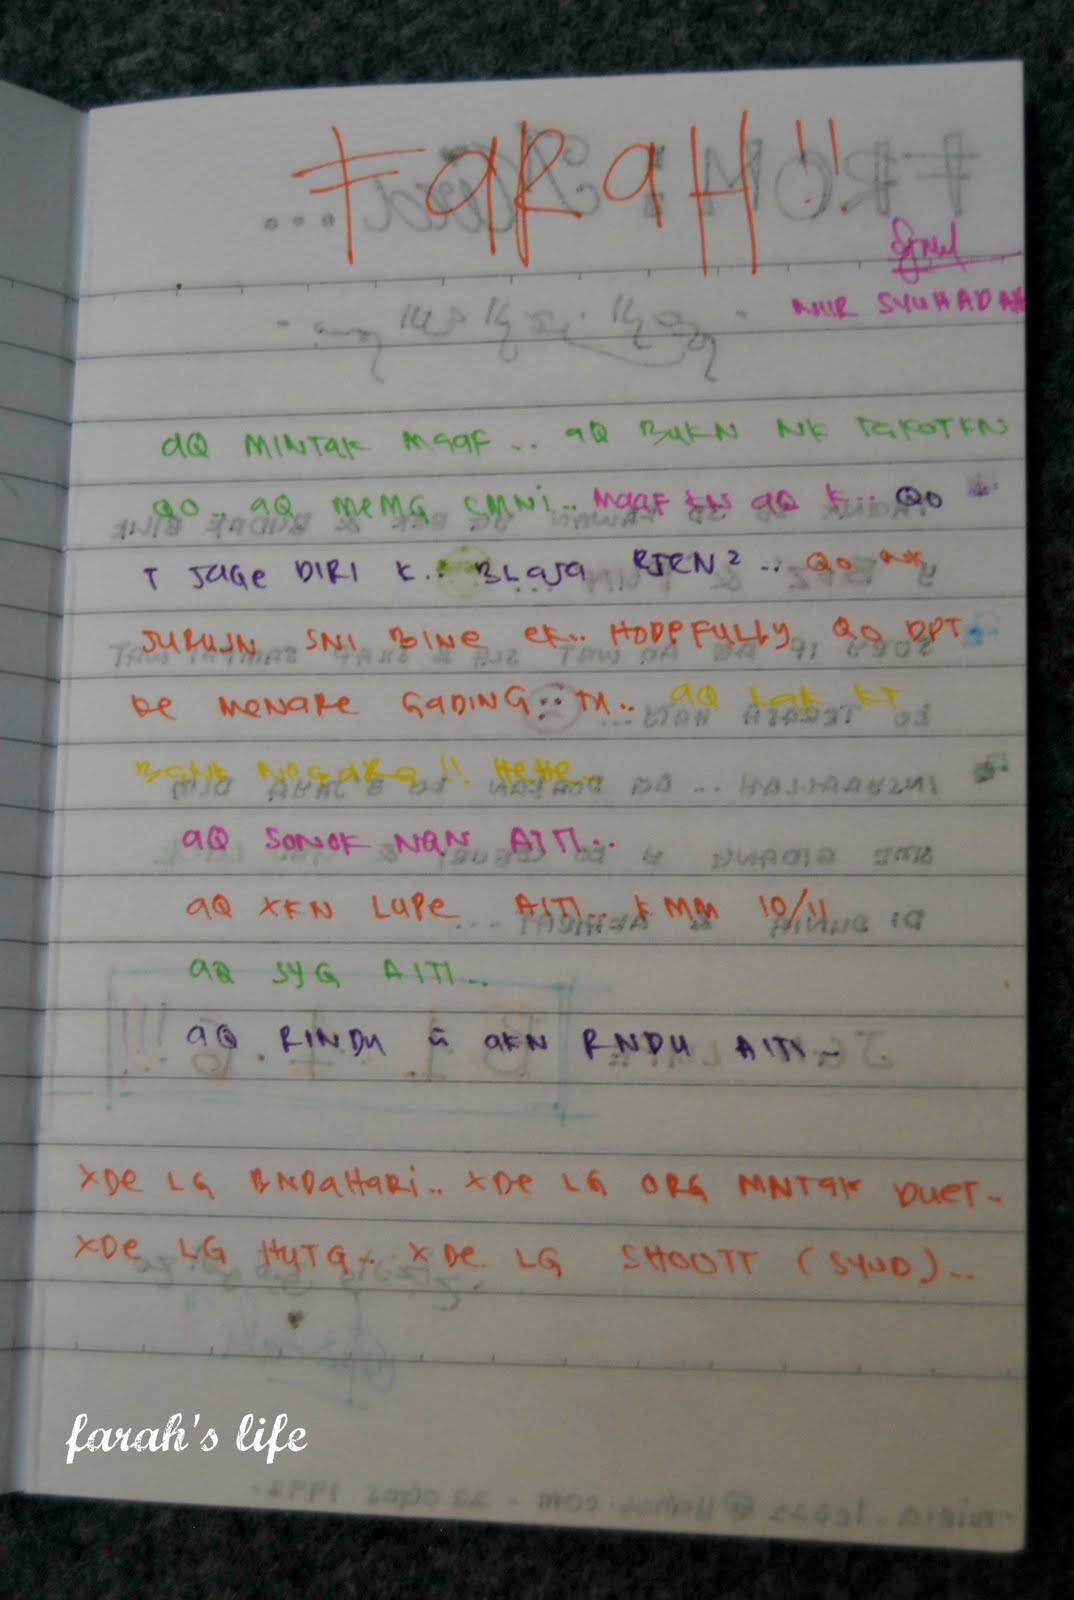 FaRaH !!
NUR SYUHADAH
aQ MINTaK MaaF .. aQ BUKN NK TGKOTKN
QO.. aQ MeMG CMNi.. MaaF KN aQ K.. QO
T JaGe DIRI K.. BLaJa RJEN2 .. QO NK
JURUSN SNI BINe eK.. HOPEFULLY QO DPT
Ke MeNaRe GaDING.. TU.. aQ LaK KT
BaNK NeGaRa !! HeHe..
aQ SONOK NGN AITI...
aQ XKN LUPe AITI.. KMM 10/11
aQ SYG AITI..
aQ RINDU & aKN RNDU AITI..
XDe LG BNDaHaRi.. XDe LG ORG MNTaK DUET..
XDe LG HUTG.. XDe LG SHOOTT (SYUD)...
farah's life